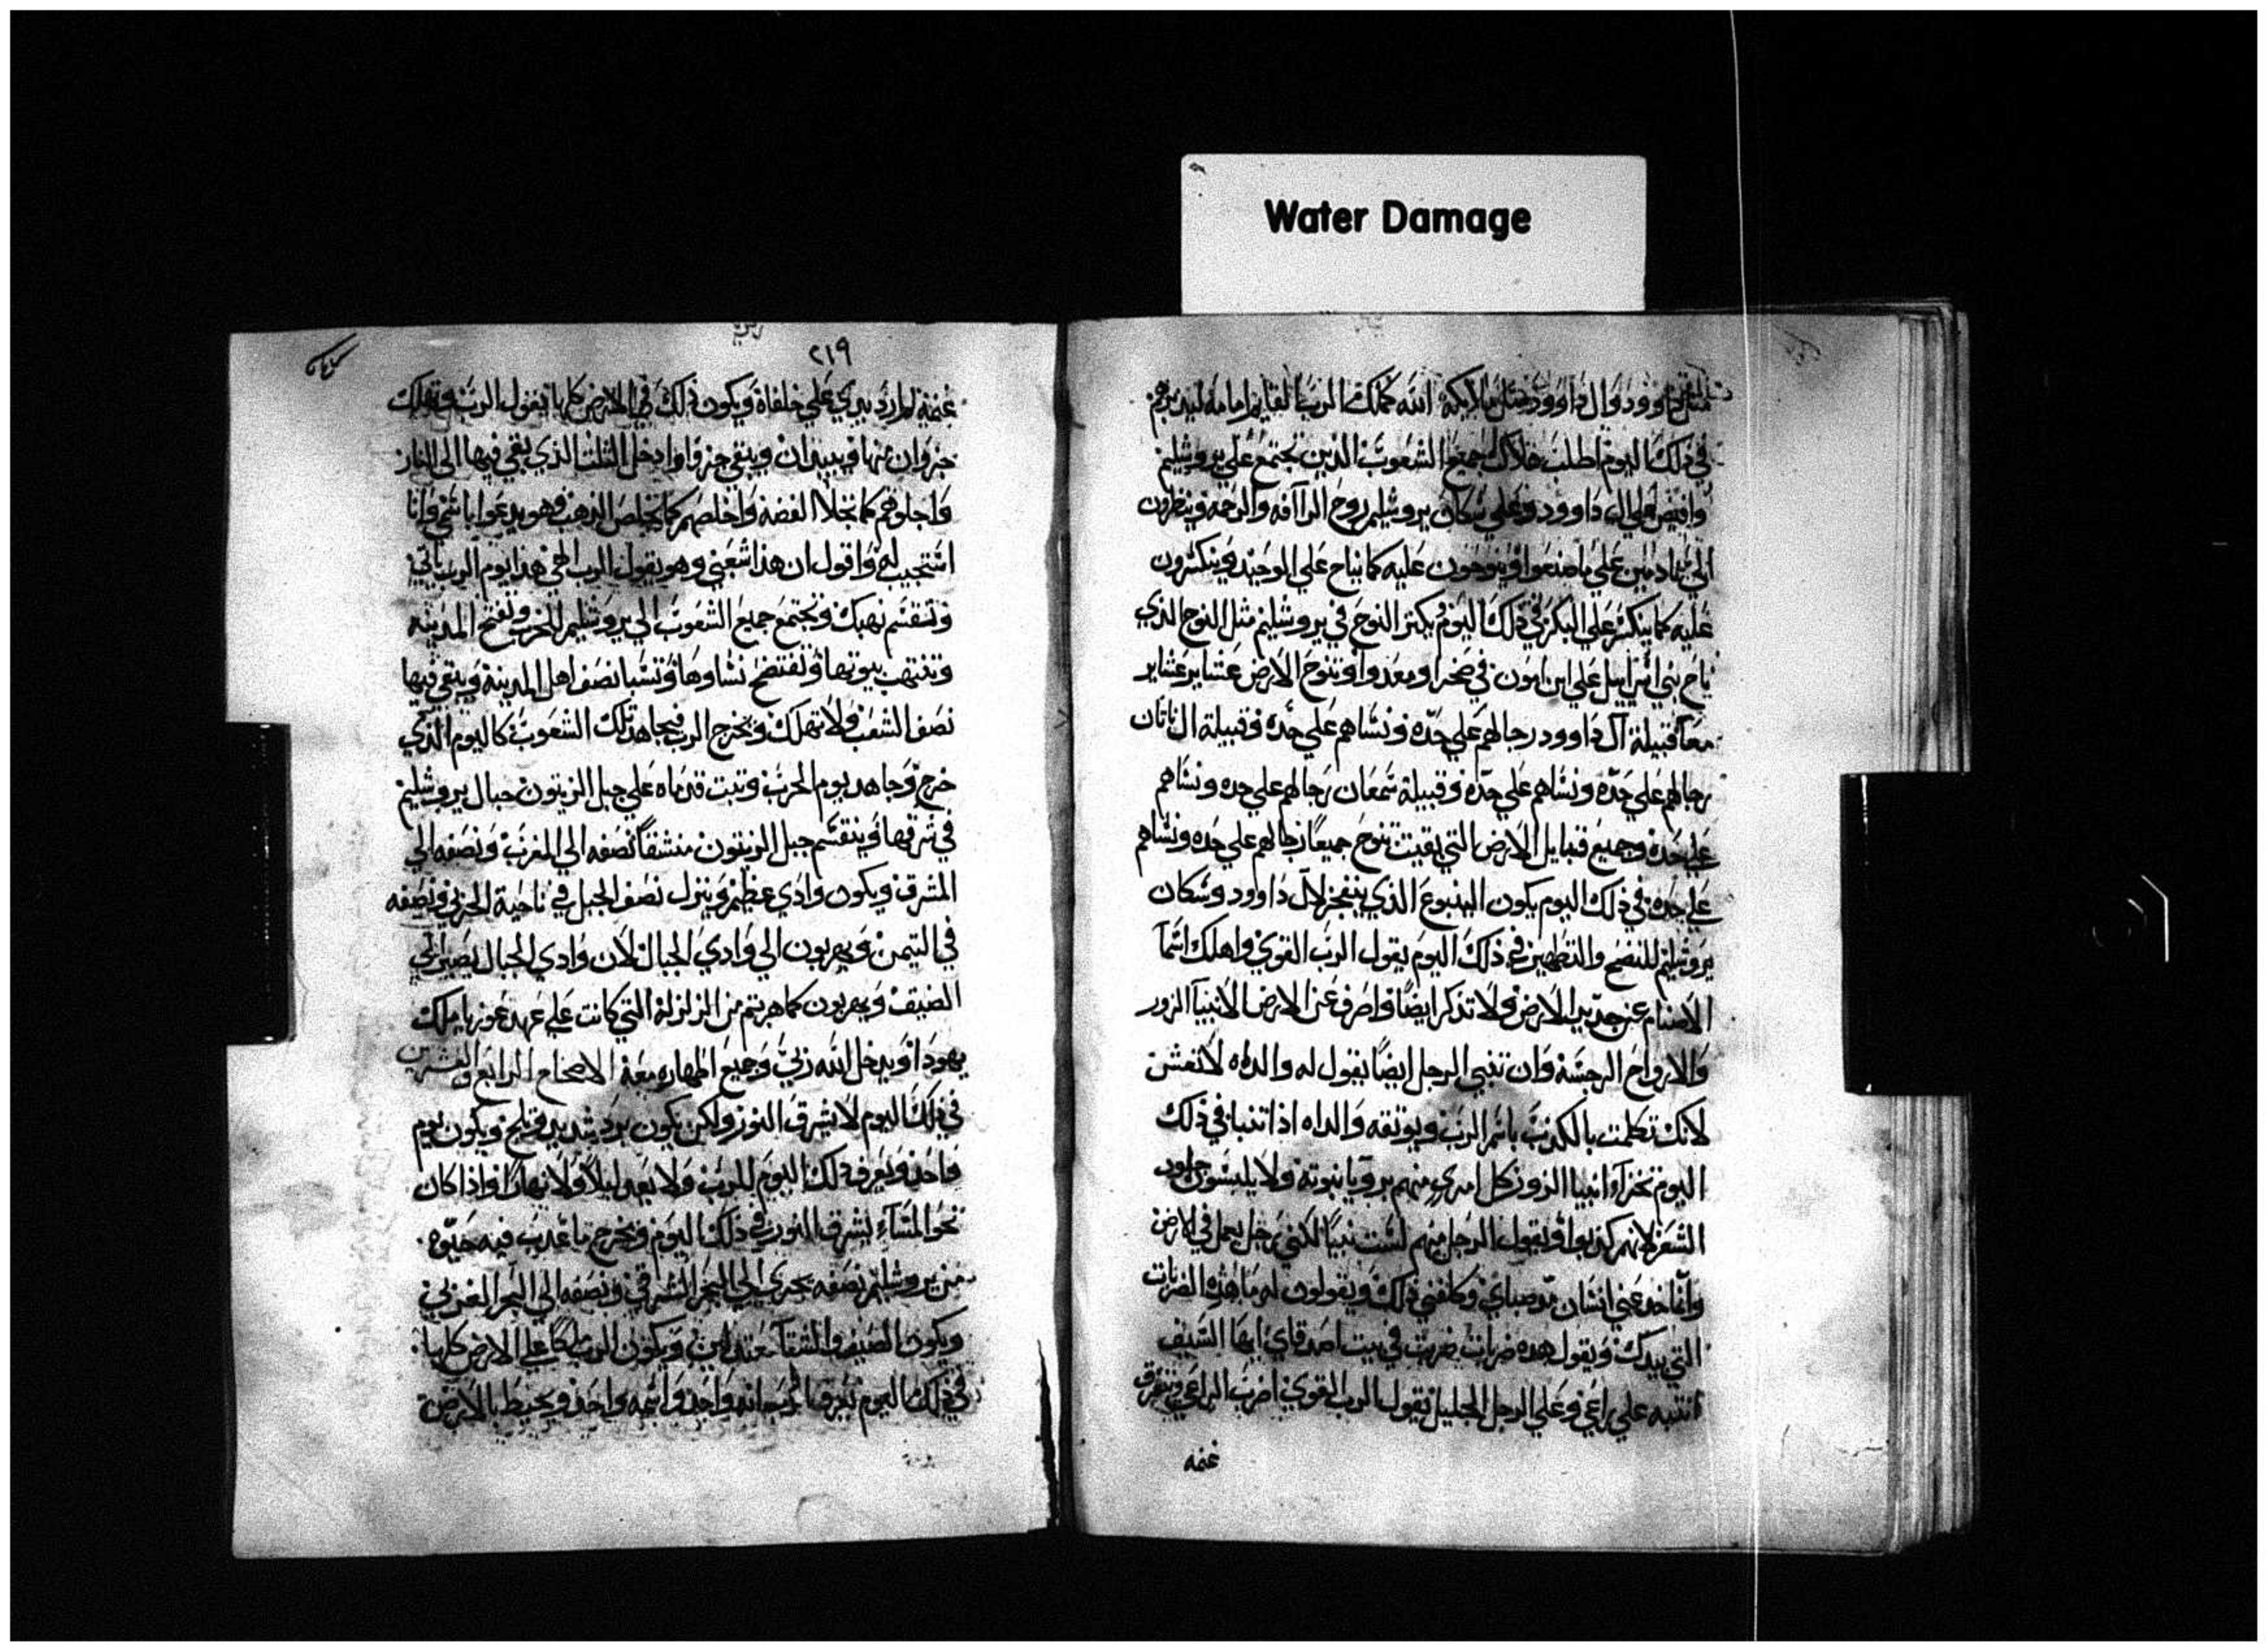 Water Damage
مثل داوود وال داوود مثل ملايكة الله كملك الرب القايم امامه ليدبرهم
في ذلك اليوم اطلب هلاك جميع الشعوب الذين تجتمع علي يروشليم
وافيض علي ال داوود وعلي سكان يروشليم روح الراافه والرحمه وينظرون
الي نادمين علي ما صنعوا وينوحون عليه كما يناح علي الوحيد وينكسرون
عليه كما ينكسر علي البكر في ذلك اليوم يكتر النوح في يروشليم مثل النوح الذي
ناح بني اسراييل علي ابن امون في صحرا ومعدوا وتنوح الارض عشاير عشاير
معا قبيلة آل داوود رجالهم علي حده ونساهم علي حده وقبيلة ال ناتان
رجالهم علي حده ونساهم علي حده وقبيلة شمعان رجالهم علي حده ونساهم
علي حده وجميع قبايل الارض التي بقيت تنوح جميعا رجالهم علي حده ونساهم
علي حده في ذلك اليوم يكون الينبوع الذي ينفجر لال داوود وسكان
يروشليم للنضح والتطهير في ذلك اليوم يقول الرب القوي واهلك اسما
الاصنام عن جديد الارض ولا تذكر ايضا واصرف عن الارض الانبيا الزور
والارواح الرجسة وان تنبي الرجل ايضا يقول له والداه لا تعش
لانك تكلمت بالكذب باسم الرب ويوتقه والداه اذا تنبا في ذلك
اليوم تخزا انبيا الزور كل امري منهم برويا نبوته ولا يلبسون جلود
الشعر لانهم كذبوا ويقول الرجل منهم لست نبيا لكني رجل يعمل في الارض
وانما خدعني انسان من صباي وكلفني ذلك ويقولون له ما هذه الضربات
التي بيدك ويقول هذه ضربات ضربت في بيت اصدقاي ايها السيف
انتبه علي راعي وعلي الرجل الجليل يقول الرب القوي اضرب الراعي وتتفرق
غنمه
٢١٩
غنمه ثم ارد يدي علي خلفاه ويكون ذلك في الارض كلها يقول الرب وتهلك
جزوان منها ويبيدان ويبقي جزوا وادخل الثلث الذي بقي فيها الي النار
واجلوهم كما تجلا الفضة واخلصهم كما يخلص الذهب فهو يدعوا باسمي وانا
استجيب لهم واقول ان هذا شعبي وهو يقول الرب الهي هذا يوم الرب ياتي
وتنقسم نهبك وتجتمع جميع الشعوب الي يروشليم للحرب وتفتح المدينه
وتنتهب بيوتها وتفتضح نساوها وتسبا نصف اهل المدينة ويبقي فيها
نصف الشعب ولا تهلك ويخرج الرب فيجاهد تلك الشعوب كاليوم الذي
خرج وجاهد يوم الحرب وتبت قدماه علي جبل الزيتون حبال يروشليم
في شرقها وينقسم جبل الزيتون منشقا نصفه الي المغرب ونصفه الي
المشرق ويكون وادي عظيم وينزل نصف الجبل في ناحية الجربي ونصفه
في التيمن ويهربون الي وادي الجبال لان وادي الجبال يصير الي
الضيق ويهربون كما هربتم من الزلزلة التي كانت علي عهد عوزيا ملك
يهودا ويدخل الله ربي وجميع اطهاره معه الاصحاح الرابع والعشرين
في ذلك اليوم لا يشرق النور ولكن يكون برد شديد وتلج ويكون يوم
واحد ويعرف ذلك اليوم للرب ولا يعد ليلا ولا نهارا واذا كان
نحو المساء يشرق النور في ذلك اليوم ويخرج ما عدب فيه حيوه
من يروشليم نصفه يجري الي البحر الشرقي ونصفه الي البحر الغربي
ويكون الصيف والشتا معتدلين ويكون الرب ملكا علي الارض كلها
في ذلك اليوم يعرف الرب انه واحد واسمه واحد ويحيط بالارض